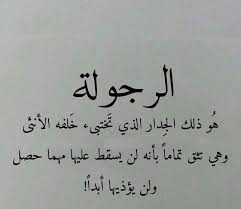 الرجولة
هُو ذلك الجِدار الذي تَختبىء خَلفه الأنثى
وهي تثق تماماً بأنه لن يسقط عليها مهما حصل
ولن يؤذيها أبداً!